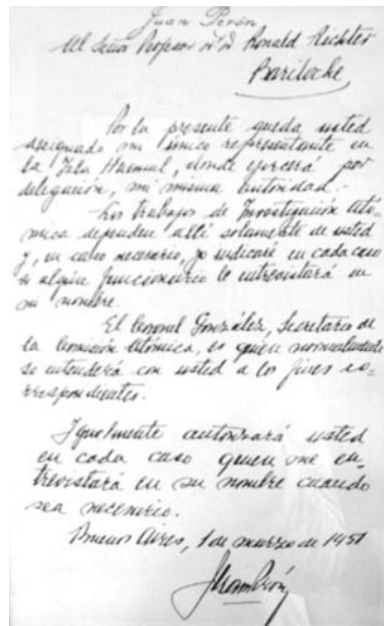 Juan Perón
Al Señor Profesor Dr D Ronald Richter
Bariloche
Por la presente queda usted
asignado mi único representante en
la Isla Huemul, donde ejercerá por
delegación, mi misma autoridad.-
Los trabajos de Investigación Ató=
mica dependen allí solamente de usted
y, en caso necesario, yo indicaré en cada caso
si algún funcionario lo entrevistará en
mi nombre.
El Coronel González, Secretario de
la Comisión Atómica, es quien normalmente
se entenderá con usted a los fines co=
rrespondientes.
Igualmente autorizará usted
en cada caso quien me en=
trevistará en su nombre cuando
sea necesario.
Buenos Aires, 1 de marzo de 1951
Juan Perón